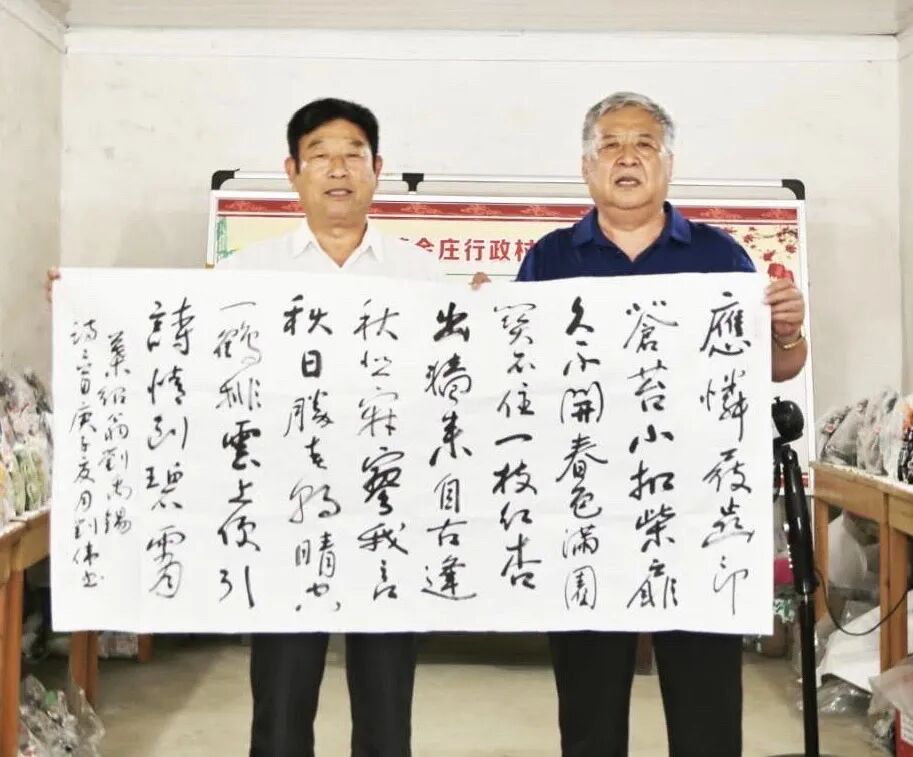 会庄行政村
應憐屐齒印
蒼苔小扣柴扉
久不開春色滿園
關不住一枝红杏
出牆來自古逢
秋悲寂寥我言
秋日勝春朝晴空
一鶴排雲上便引
詩情到碧霄
葉紹翁劉禹錫
诗二首庚子夏月劉偉书